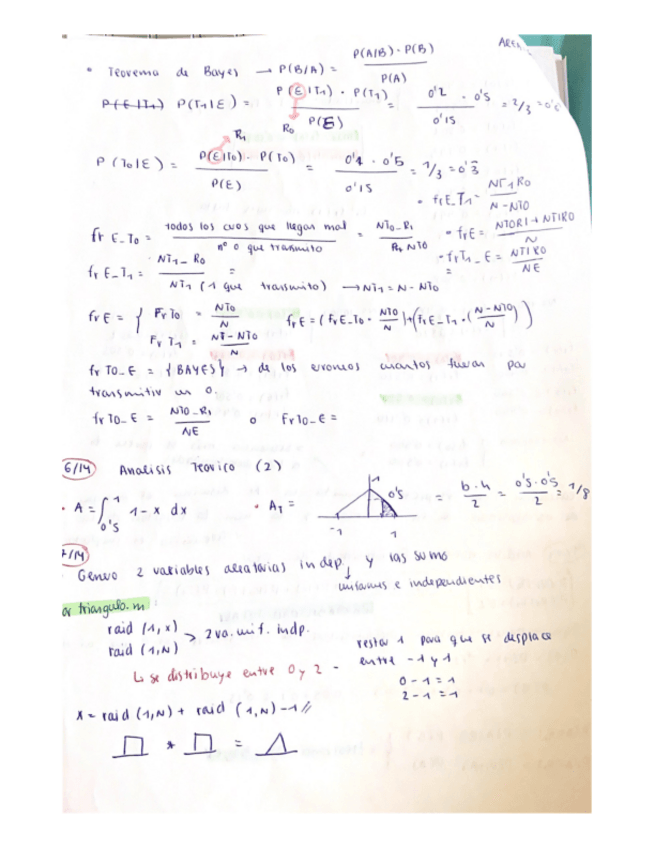 AREA
• Teorema de Bayes → P(B/A) = P(A/B) · P(B) / P(A)
P(E|T1) P(T1|E) = P(E|T1) · P(T1) / P(E) = 0'2 · 0'5 / 0'15 = 2/3 = 0'6
R1 R0
P(T0|E) = P(E|T0) · P(T0) / P(E) = 0'1 · 0'5 / 0'15 = 1/3 = 0'3
• frE_T1 = NT1R0 / N-NT0
fr E_T0 = todos los ceros que llegan mal / nº 0 que transmito = NT0_R1 / R1 NT0
• frE = NT0R1 + NT1R0 / N
• frT1_E = NT1R0 / NE
fr E_T1 = NT1_R0 / NT1 (1 que transmito) = → NT1 = N - NT0
fr E = { Fr T0 = NT0 / N
Fr T1 = NT - NT0 / N
frE = (FrE_T0 · NT0 / N) + (frE_T1 · (N-NT0 / N))
fr T0_E = {BAYES} → de los erroneos cuantos fueron por
transmitir un 0.
fr T0_E = NT0_R1 / NE o FrT0_E =
6/14 Analisis Teorico (2)
• A = ∫ 0'5 1 1 - x dx
• A1 = 1 0'5 -1 1 = b·h / 2 = 0'5·0'5 / 2 = 1/8
7/14
Genero 2 variables aleatorias indep. y las sumo
uniformes e independientes
triangulo.m :
raid (1,x)
raid (1,N) > 2 va. unif. indp.
↳ se distribuye entre 0 y 2 -
restar 1 para que se desplace
entre -1 y 1
0 - 1 = 1
2 - 1 = 1
x = raid (1,N) + raid (1,N) - 1 //
* =